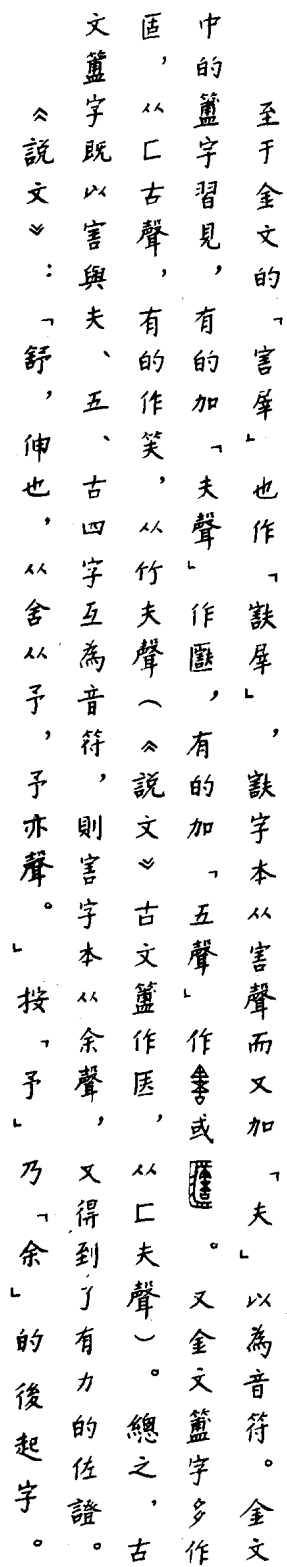 至于金文的「害屖」也作「㝬屖」，㝬字本从害聲而又加「夫」以為音符。金文
中的簠字習見，有的加「夫聲」作𠥗，有的加「五聲」作或。又金文簠字多作
匼，从匚古聲，有的作笑，从竹夫聲（《說文》古文簠作匧，从匚夫聲）。總之，古
文簠字既以害與夫、五、古四字互為音符，則害字本从余聲，又得到了有力的佐證。
《說文》：「舒，伸也，从舍从予，予亦聲。」按「予」乃「余」的後起字。